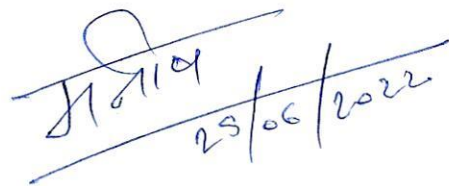 मनीष
25/06/2022